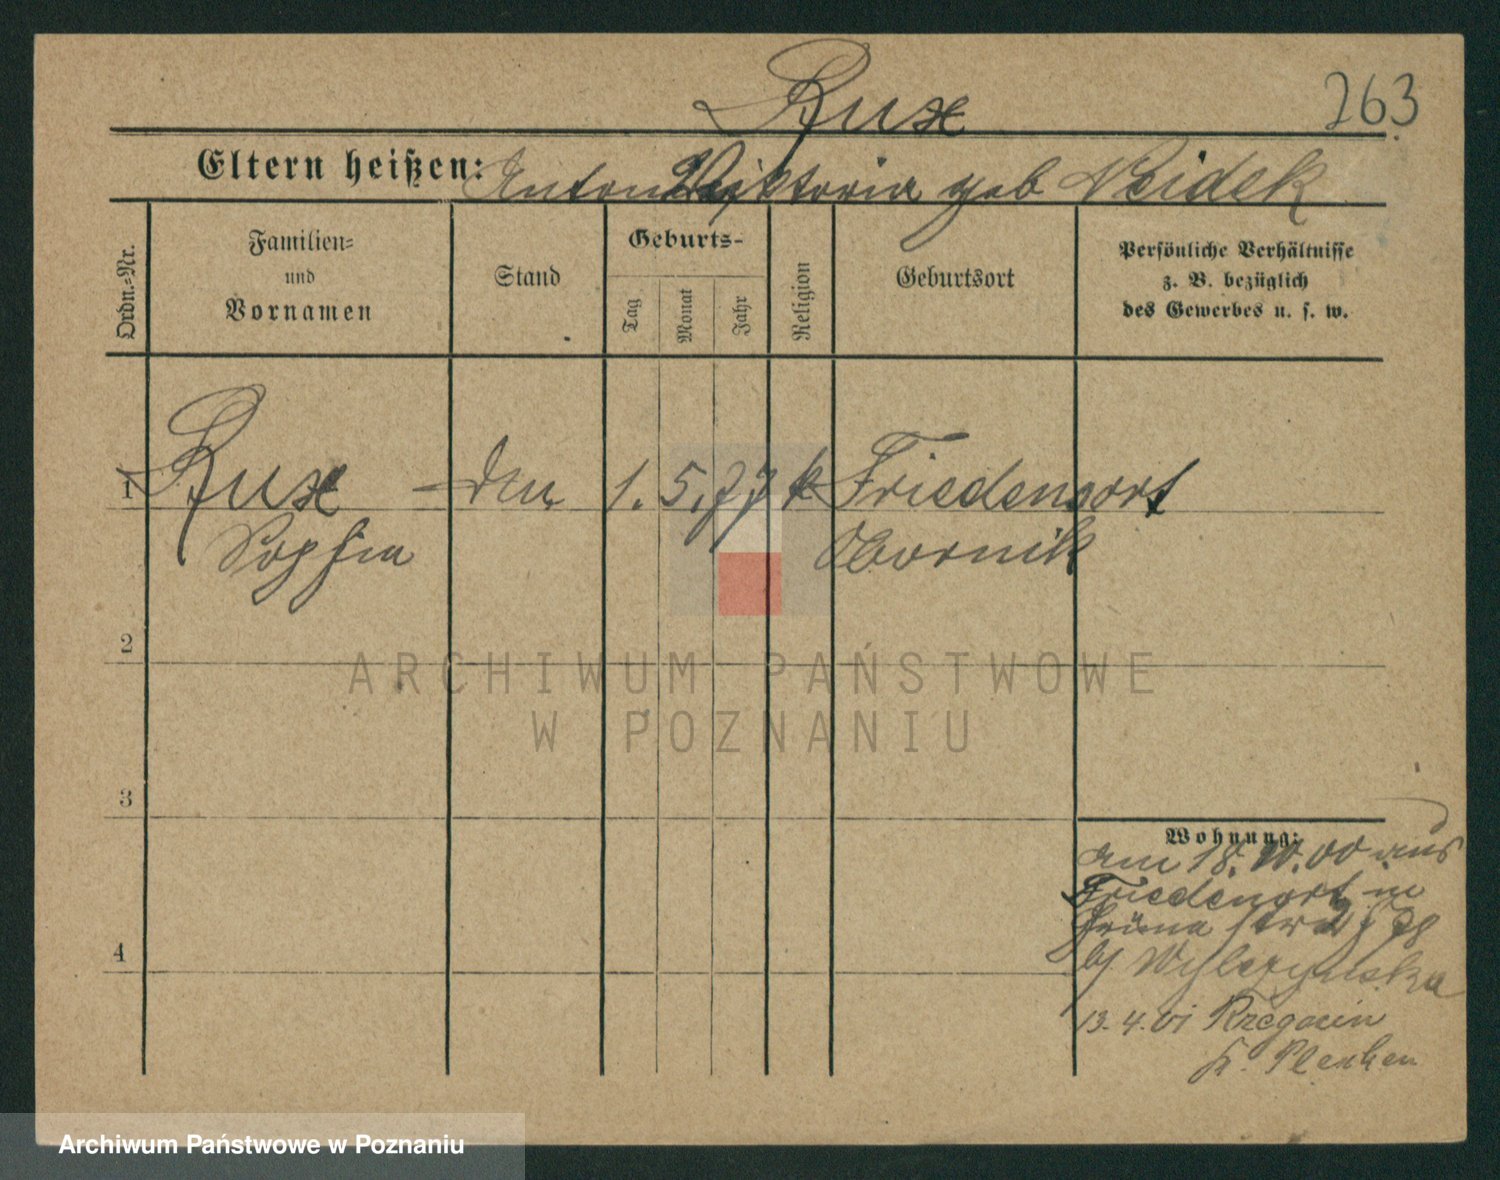 Rux
263
Eltern heißen: Anton Wiktoria geb Neidek
Ordn.=Nr.
Familien=
und
Vornamen
Stand
Geburts-
Tag
Monat
Jahr
Religion
Geburtsort
Persönliche Verhältnisse
z. B. bezüglich
des Gewerbes u. s. w.
1 Rux 1. 5. 77 k Friedensort
Sophia Obornik
2
3
4
Wohnung:
am 18. 10. 00 aus
Friedenort in
by Wylczynska
13. 4. 01
Kr. Pleschen
ARCHIWUM PAŃSTWOWE
W POZNANIU
Archiwum Państwowe w Poznaniu